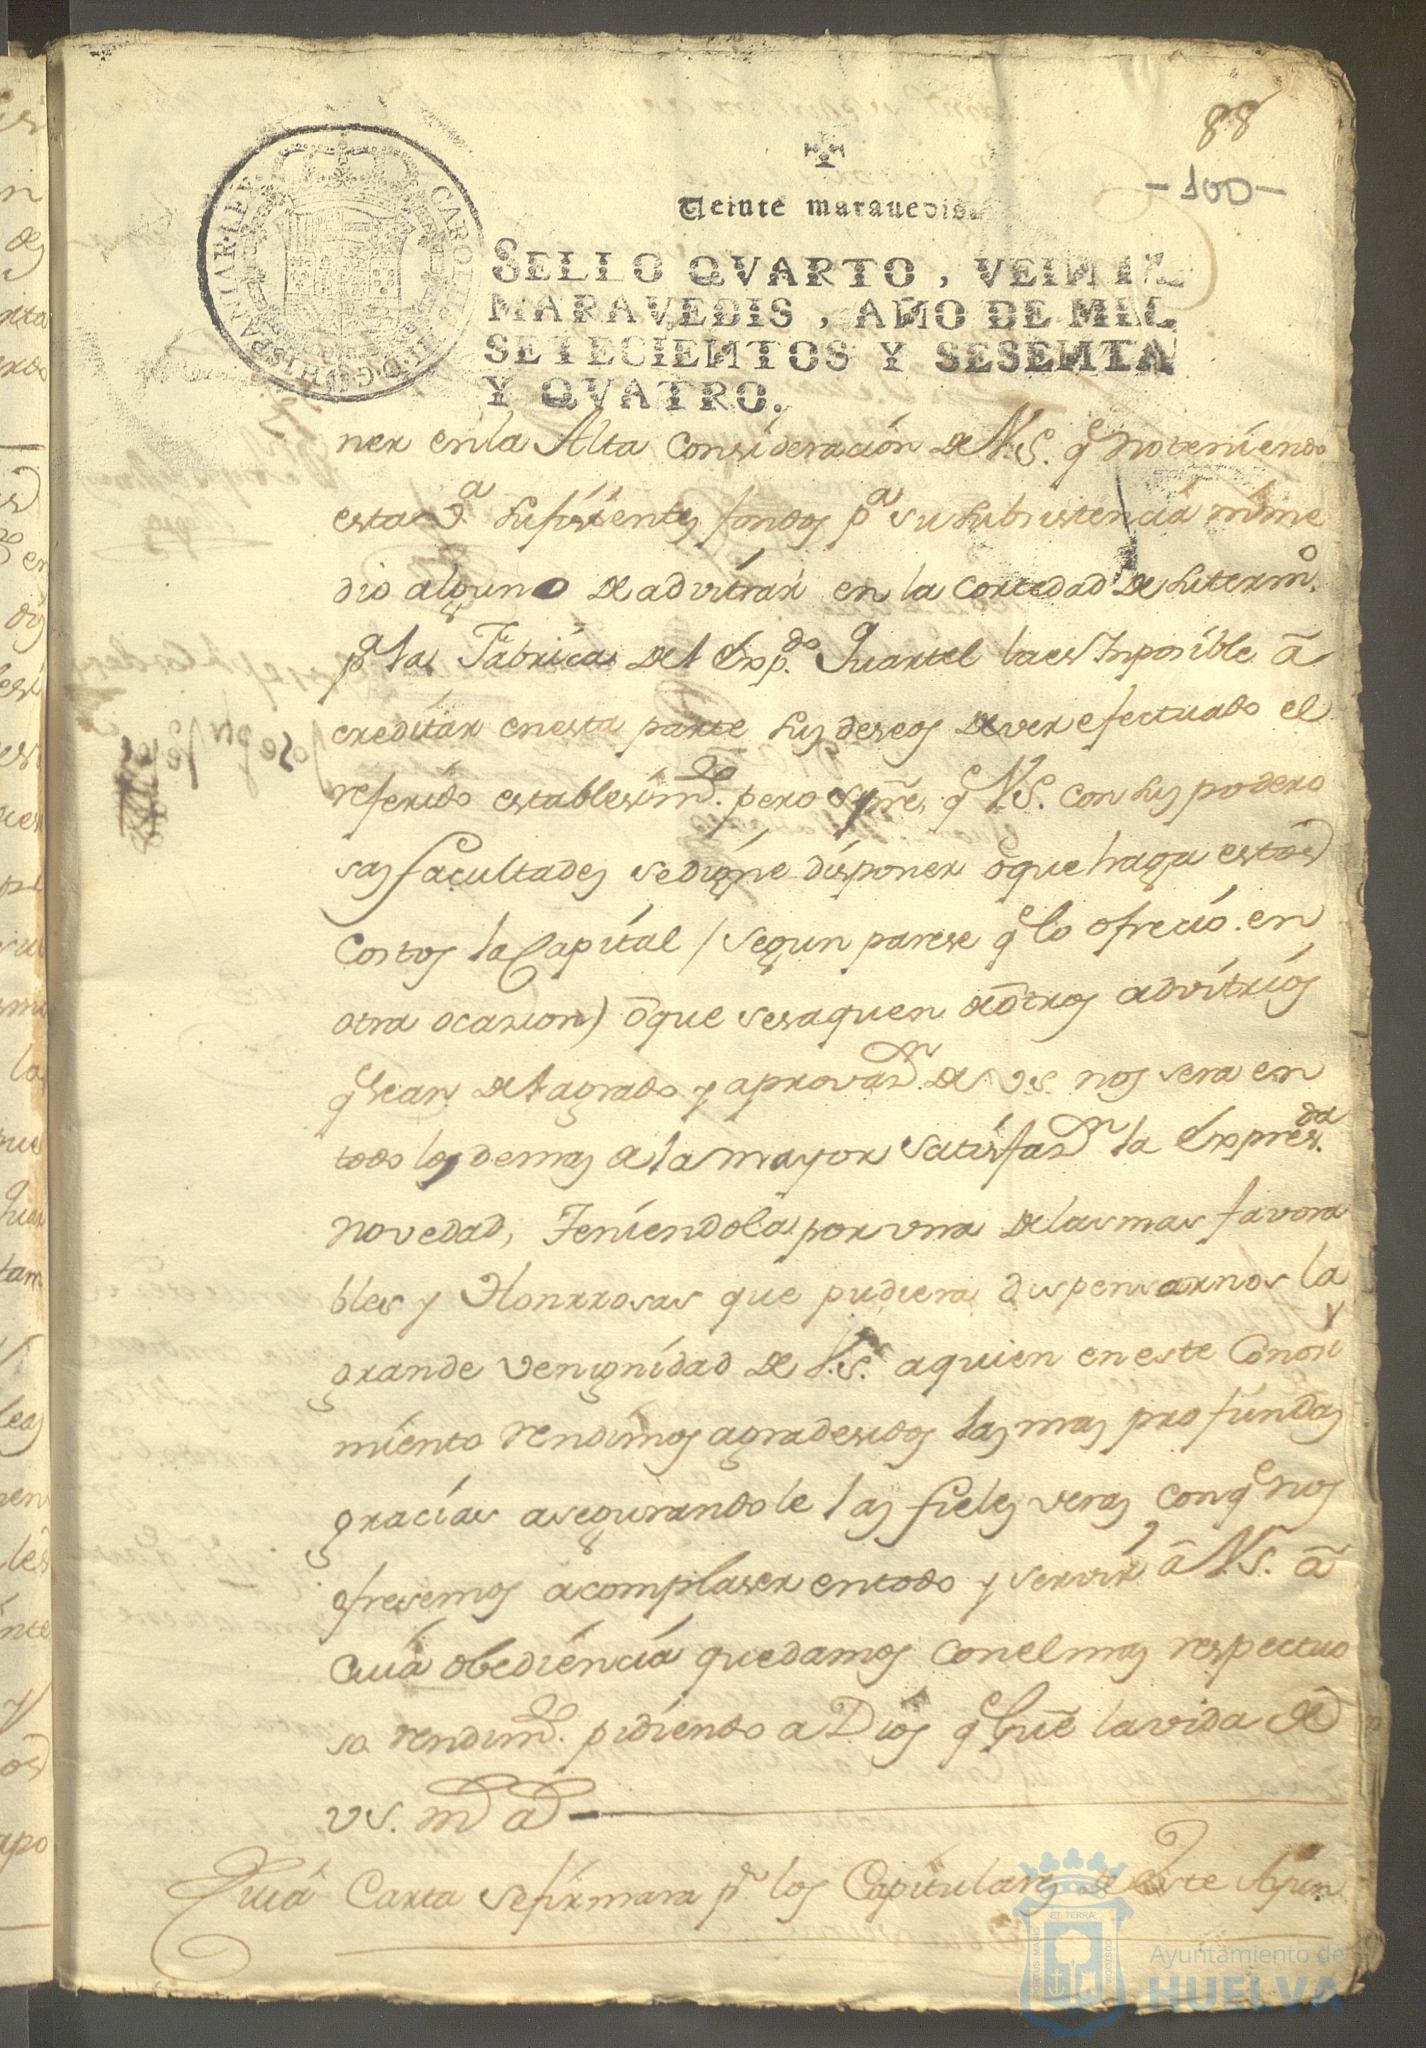 88
-100-
Veinte maravedis.
SELLO QVARTO, VEINTE
MARAVEDIS, AÑO DE MIL
SETECIENTOS Y SESENTA
Y QVATRO.
CAROLUS III D.G. HISPANIAR. REX
ner en la Alta Consideración de V.S. q̃ no teniendo
esta V.ª sufisientes fondos p.ª su subsistencia ni me
dio alguno de advitrar en la cortedad de su term.º
p.ª la Fabrica del Exp.do Quartel la es Inposible a
creditar en esta parte sus deseos de ver efectuado el
referido establesim.to pero siempre q̃ V.S. con sus podero
sas facultades se digne disponer o que haga estos
Costos la Capital / segun parese q̃ lo ofreció en
otra ocasion) o que se saquen de otros advitrios
q̃ sean del agrado y aprovaz.n de V.S. nos sera en
todo lo demas de la mayor satisfaz.n la Expres.da
novedad, Teniendola por una de las mas favora
bles y Honrrosas que pudiera dispensarnos la
grande venignidad de V.S. a quien en este Conosi
miento rendimos agradesidos las mas profundas
gracias asegurandole las fieles veras con q̃ nos
ofresemos a complaser en todo y servir a V.S. a
cuia obediencia quedamos con el mas respectuo
so rendim.to pidiendo a Dios q̃ gue la vida de
VS. m.s a.s
Cuia Carta se firmara p.r los Capitulares de Este Ayun
Ayuntamiento de
HUELVA